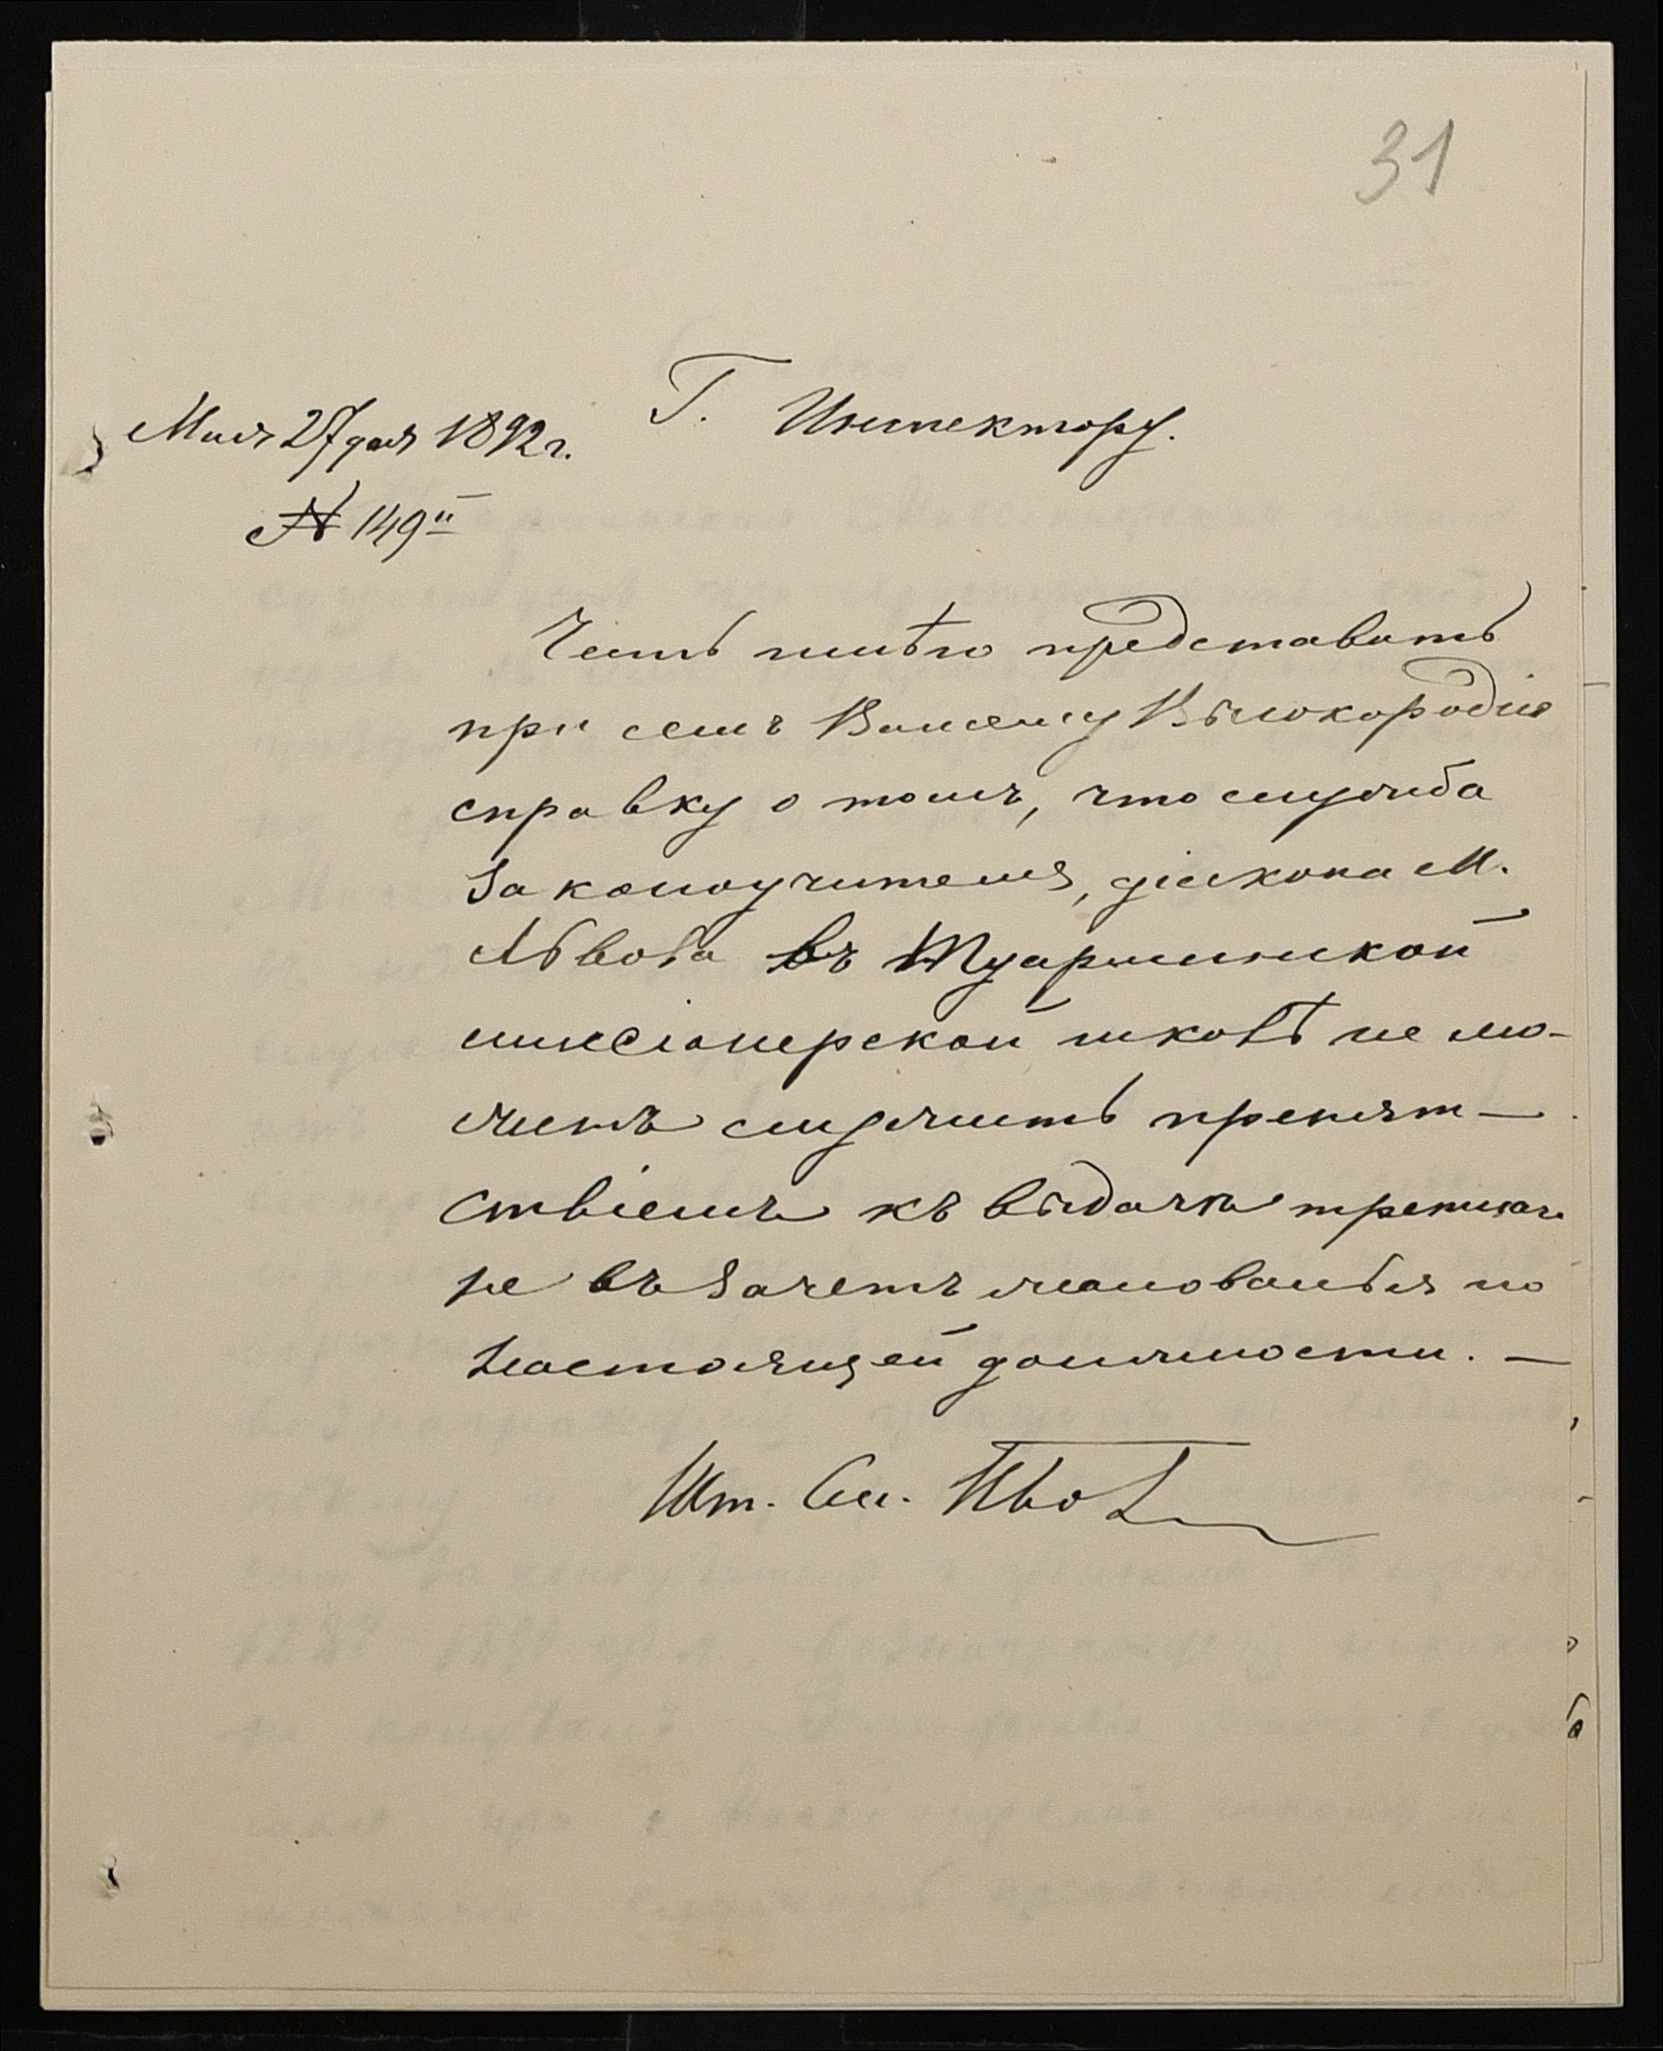 31
Мая 27 дня 1892 г.
№ 149
Г. Инспектору.
Честь имѣю представить
при семъ Вашему Высокородію
справку о томъ, что служба
законоучителя, діакона М.
Львова въ Туарминской
миссіонерской школѣ не мо-
жетъ служить препят-
ствіемъ къ выдачѣ третнаго
не въ зачетъ жалованья по
настоящей должности. —
Шт. См.